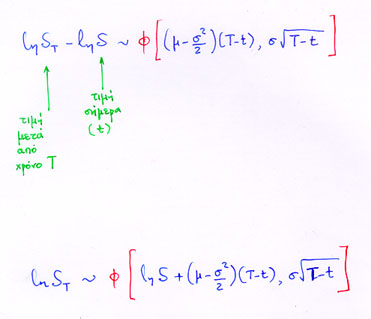 ln S_T - ln S ~ φ[(μ - σ²/2)(T-t), σ√(T-t)]
τιμή
μετά
από
χρόνο T
τιμή
σήμερα
(t)
ln S_T ~ φ[ln S + (μ - σ²/2)(T-t), σ√(T-t)]